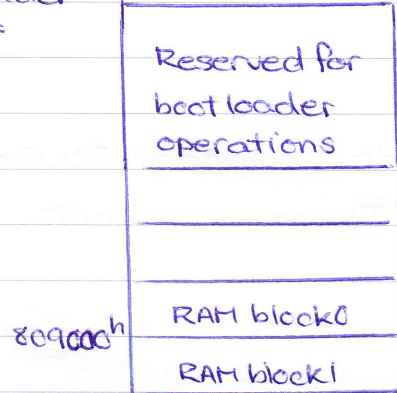 Reserved for
bootloader
operations
RAM block0
809000h
RAM block1